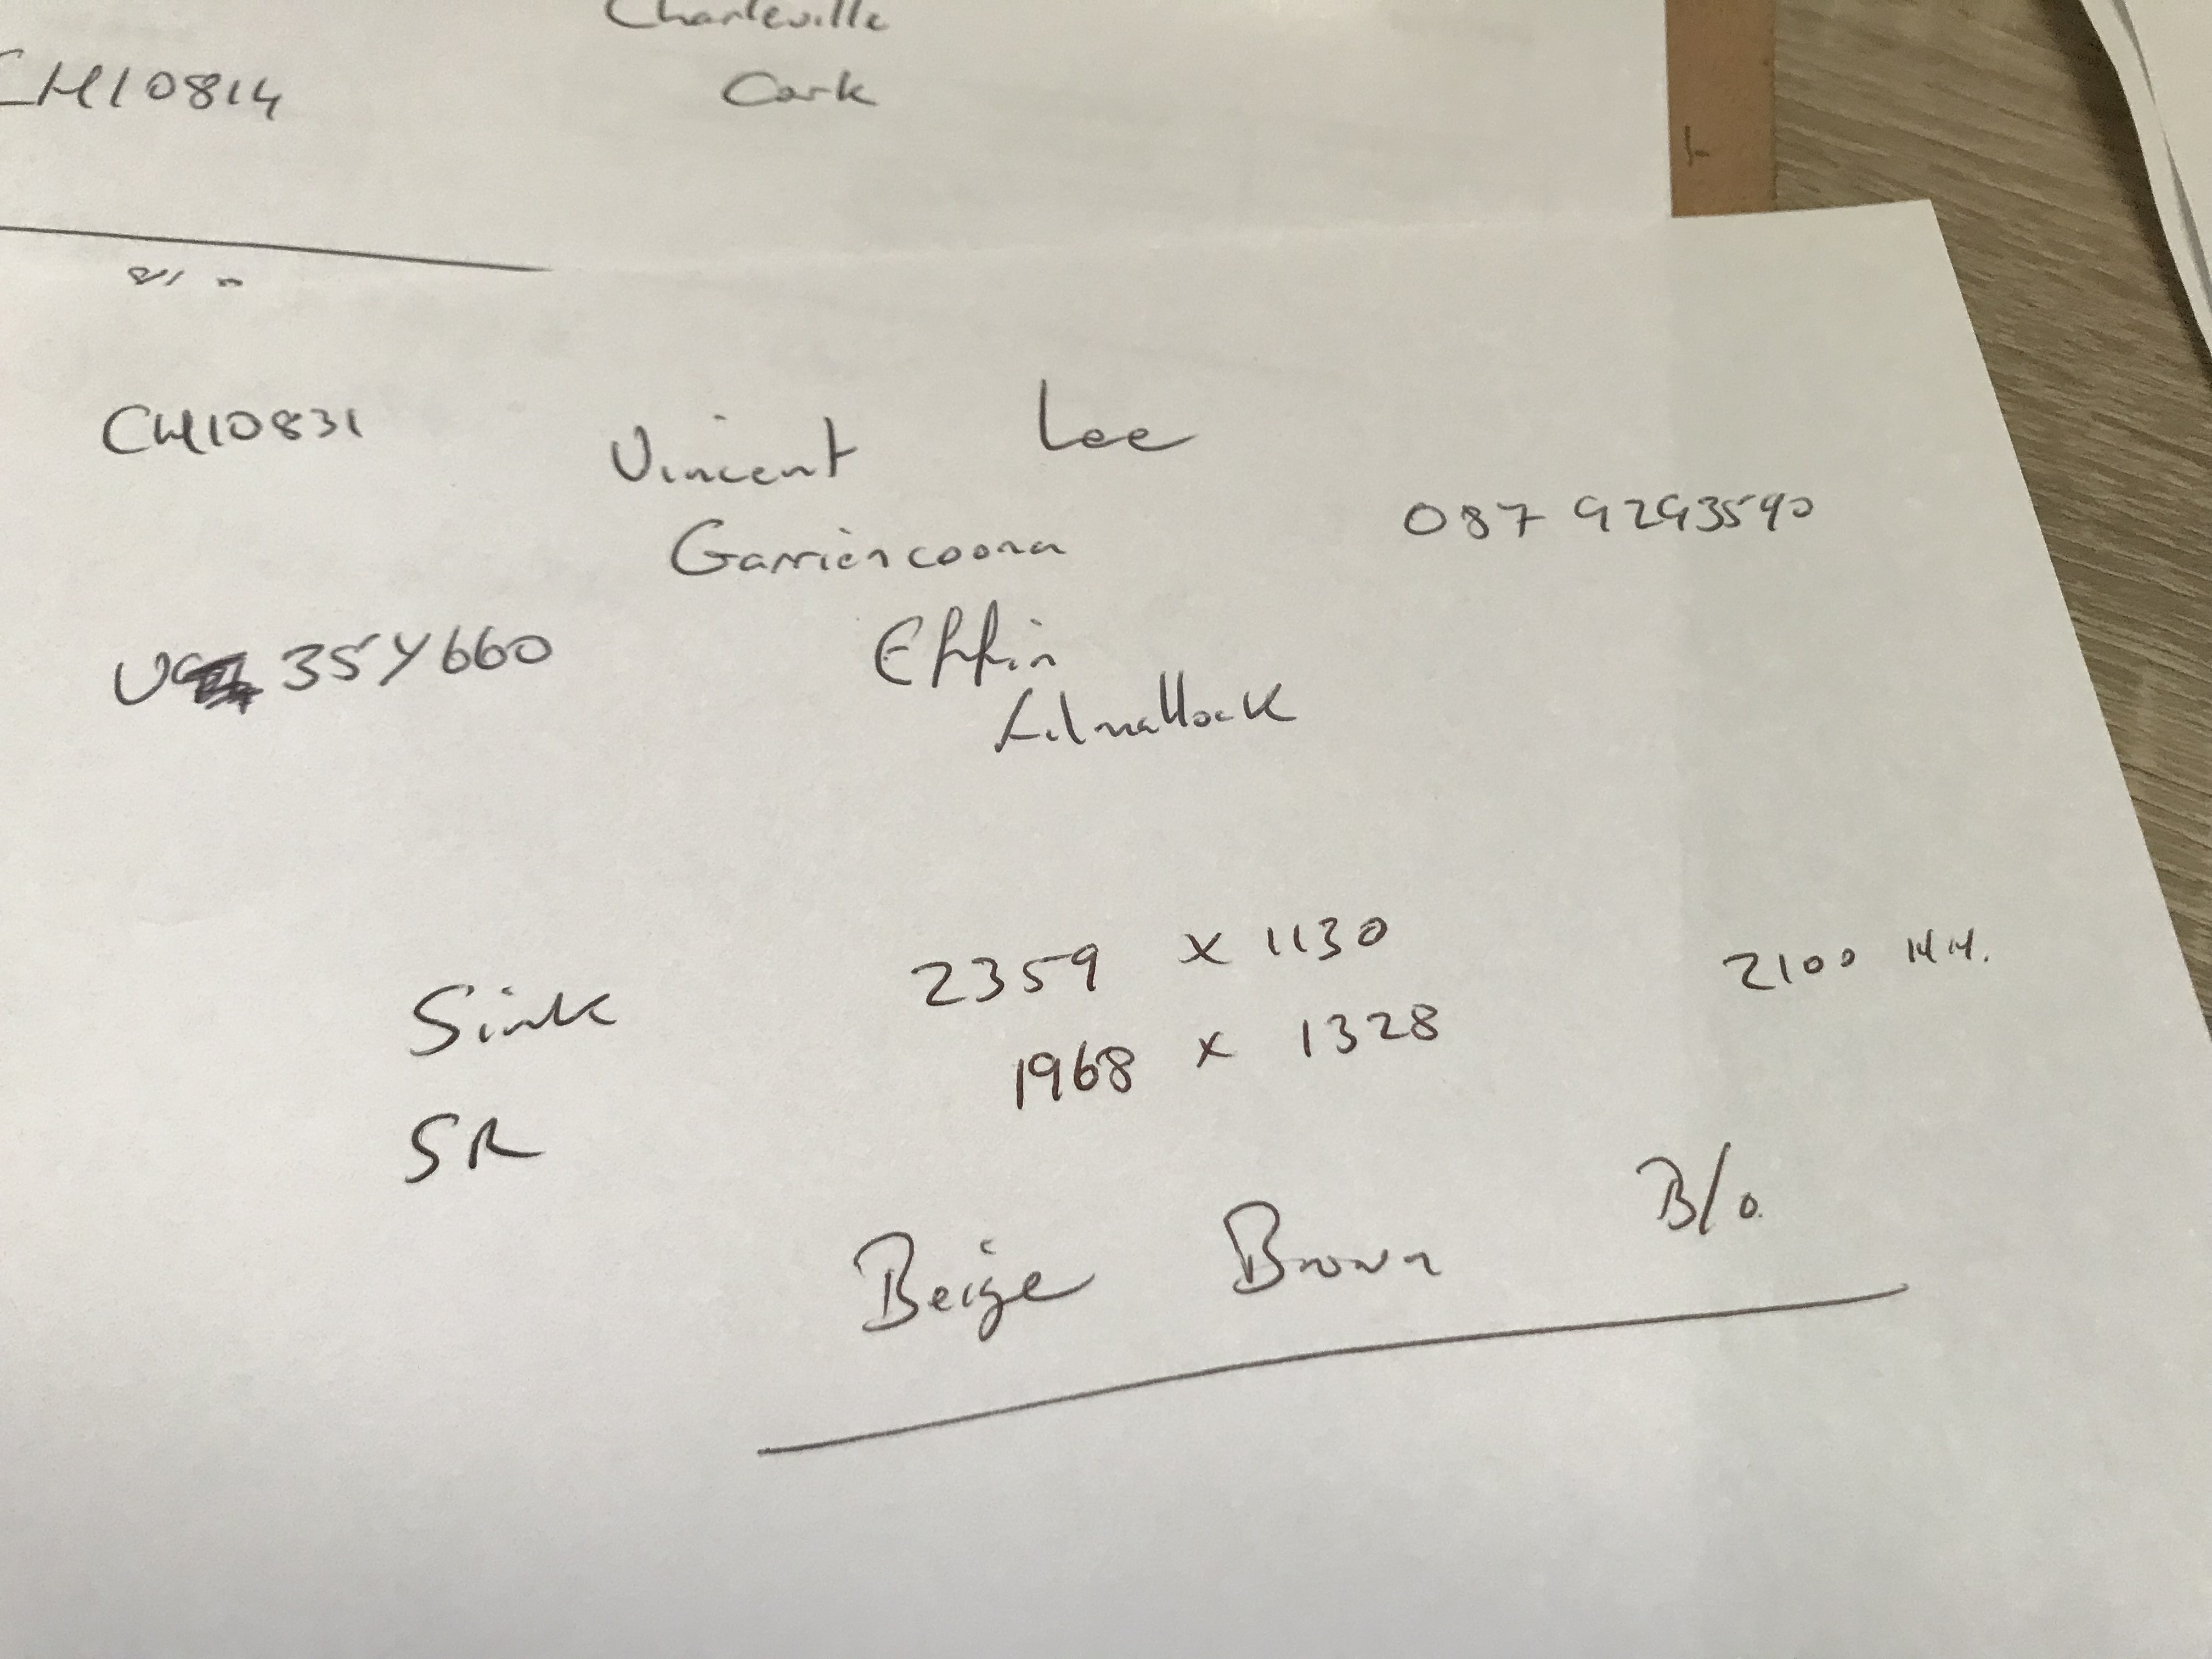 Charleville
CH10814
Cork
CH10831
Vincent Lee
087 9293590
Garriencoona
Effin
V 35Y660
Kilmallock
Sink
2359 x 1130
2100 HH.
1968 x 1328
SR
Beige Brown B/o.